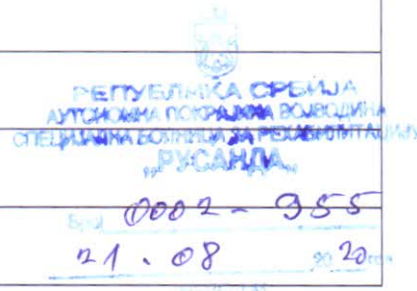 РЕПУБЛИКА СРБИЈА
АУТОНОМНА ПОКРАЈИНА ВОЈВОДИНА
СПЕЦИЈАЛНА БОЛНИЦА ЗА РЕХАБИЛИТАЦИЈУ
„РУСАНДА„
Број 0002 - 955
21 . 08 20 20 год